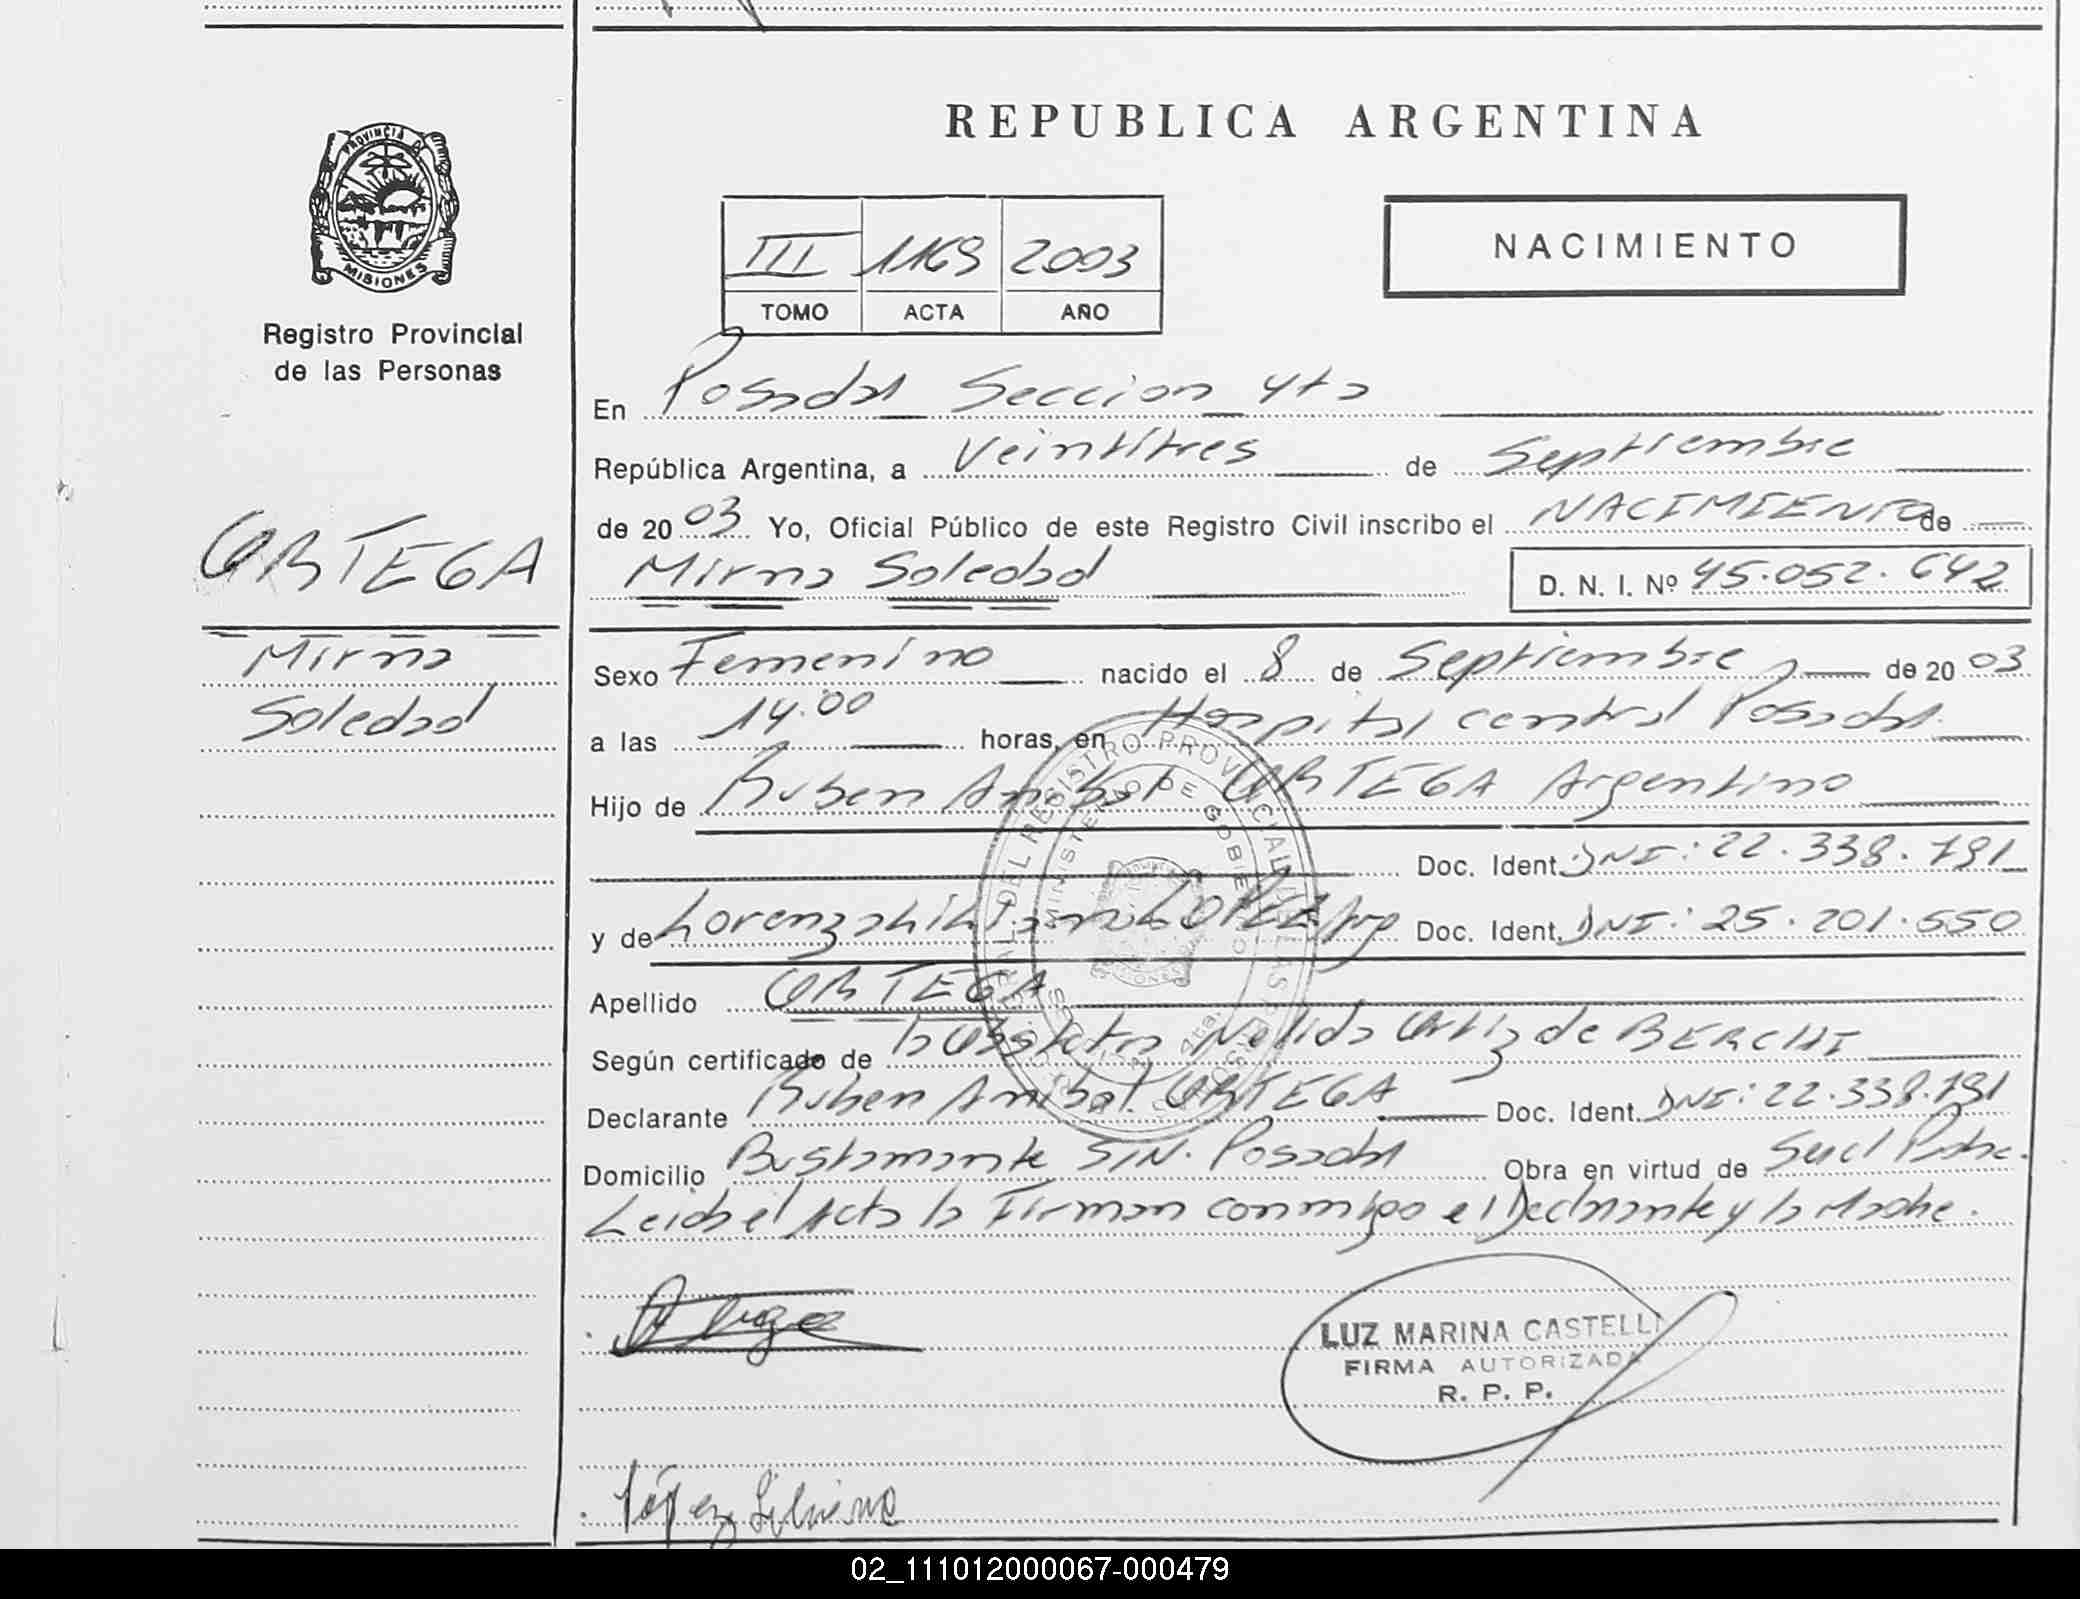 REPUBLICA ARGENTINA
PROVINCIA D MISIONES
Registro Provincial
de las Personas
III 1169 2003
TOMO ACTA AÑO
NACIMIENTO
En Posadas Seccion 4ta
República Argentina, a Veintitres de Septiembre
de 20 03 Yo, Oficial Público de este Registro Civil inscribo el NACIMIENTO de
Mirna Soledad D. N. I. Nº 45.052.642
ORTEGA
Mirna
Soledad
Sexo Femenino nacido el 8 de Septiembre de 20 03
a las 14.00 horas, en Hospital central Posadas
Hijo de Ruben Anibal ORTEGA Argentino
Doc. Ident. DNI: 22.338.791
y de Lorenza LOPEZ Arg Doc. Ident. DNI: 25.201.550
Apellido ORTEGA
Según certificado de la Obstetra Nelida Ortiz de BERCHI
Declarante Ruben Anibal ORTEGA Doc. Ident. DNI: 22.338.791
Domicilio Bustamante S/N. Posadas Obra en virtud de
Leida el Acta la Firman conmigo el Declarante y la Madre.
LUZ MARINA CASTELLI
FIRMA AUTORIZADA
R. P. P.
López Silvina
02_111012000067-000479